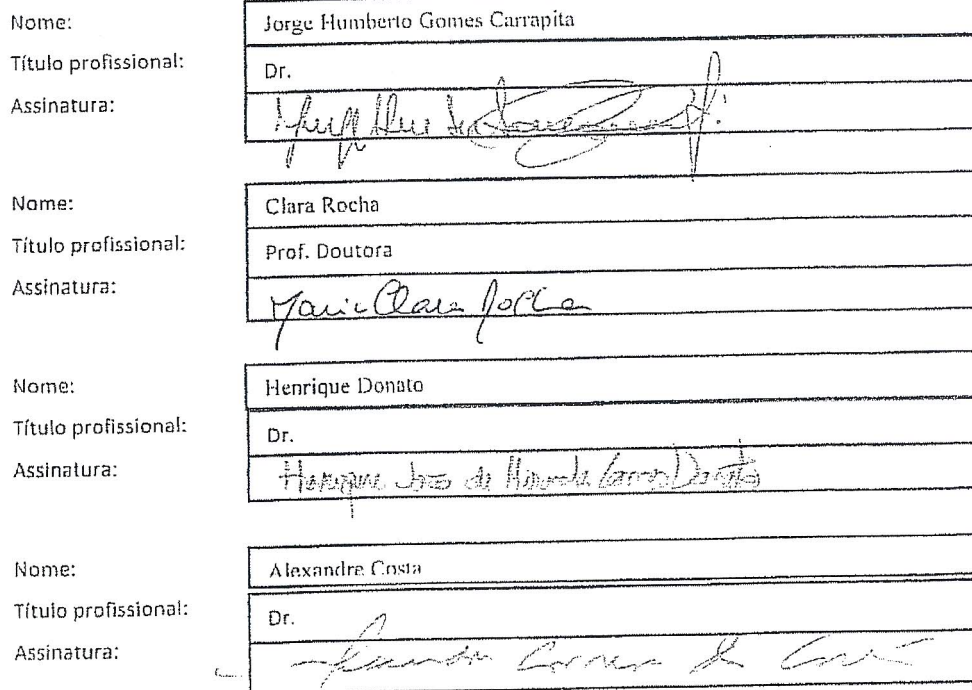 Nome: Jorge Humberto Gomes Carrapita
Título profissional: Dr.
Assinatura:
Nome: Clara Rocha
Título profissional: Prof. Doutora
Assinatura: Maria Clara Rocha
Nome: Henrique Donato
Título profissional: Dr.
Assinatura: Henrique José de Donato
Nome: Alexandre Costa
Título profissional: Dr.
Assinatura: